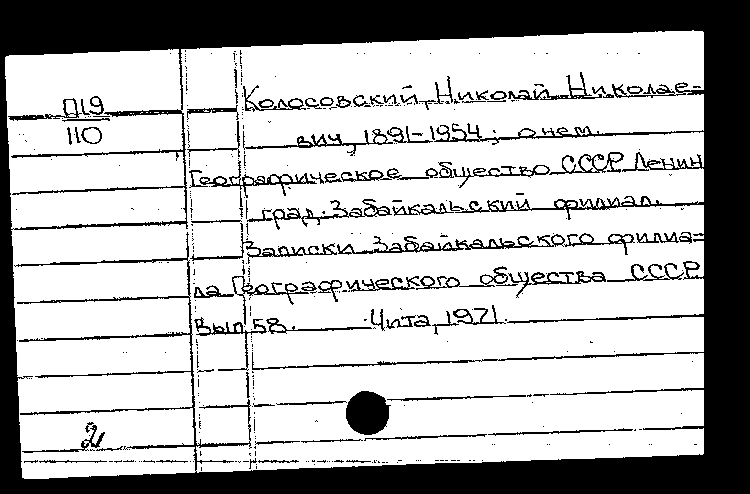 П19
110
Колосовский, Николай Николае-
вич, 1891-1954; о нем.
Географическое общество СССР Ленин
град. Забайкальский филиал.
Записки Забайкальского филиа-
ла Географического общества СССР
Вып 58. Чита, 1971.
2